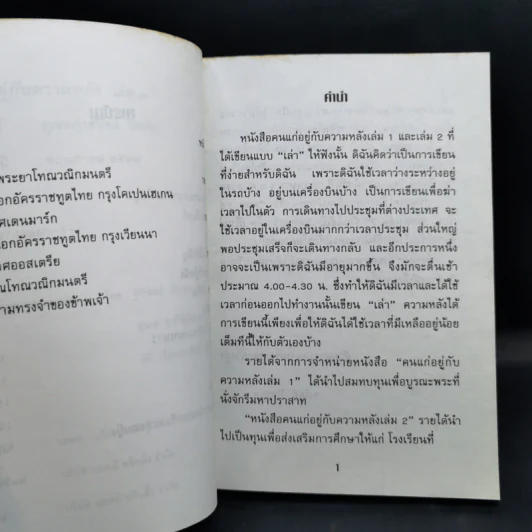 สารบัญ
พระยาโทณวณิกมนตรี
อกอัครราชทูตไทย กรุงโคเปนเฮเกน
ศเดนมาร์ก
อกอัครราชทูตไทย กรุงเวียนนา
ศออสเตรีย
ณโทณวณิกมนตรี
ามทรงจำของข้าพเจ้า
คำนำ
หนังสือคนแก่อยู่กับความหลังเล่ม 1 และเล่ม 2 ที่
ได้เขียนแบบ “เล่า” ให้ฟังนั้น ดิฉันคิดว่าเป็นการเขียน
ที่ง่ายสำหรับดิฉัน เพราะดิฉันใช้เวลาว่างระหว่างอยู่
ในรถบ้าง อยู่บนเครื่องบินบ้าง เป็นการเขียนเพื่อฆ่า
เวลาไปในตัว การเดินทางไปประชุมที่ต่างประเทศ จะ
ใช้เวลาอยู่ในเครื่องบินมากกว่าเวลาประชุม ส่วนใหญ่
พอประชุมเสร็จก็จะเดินทางกลับ และอีกประการหนึ่ง
อาจจะเป็นเพราะดิฉันมีอายุมากขึ้น จึงมักจะตื่นเช้า
ประมาณ 4.00-4.30 น. ซึ่งทำให้ดิฉันมีเวลาและได้ใช้
เวลาก่อนออกไปทำงานนั้นเขียน “เล่า” ความหลังได้
การเขียนนี้เพียงเพื่อให้ดิฉันได้ใช้เวลาที่มีเหลืออยู่น้อย
เต็มทีนี้ให้กับตัวเองบ้าง
รายได้จากการจำหน่ายหนังสือ “คนแก่อยู่กับ
ความหลังเล่ม 1” ได้นำไปสมทบทุนเพื่อบูรณะพระที่
นั่งจักรีมหาปราสาท
“หนังสือคนแก่อยู่กับความหลังเล่ม 2” รายได้นำ
ไปเป็นทุนเพื่อส่งเสริมการศึกษาให้แก่ โรงเรียนที่
1